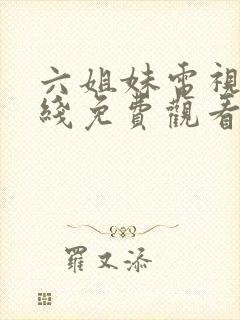 六姐妹電視
綫免費觀看
羅又添